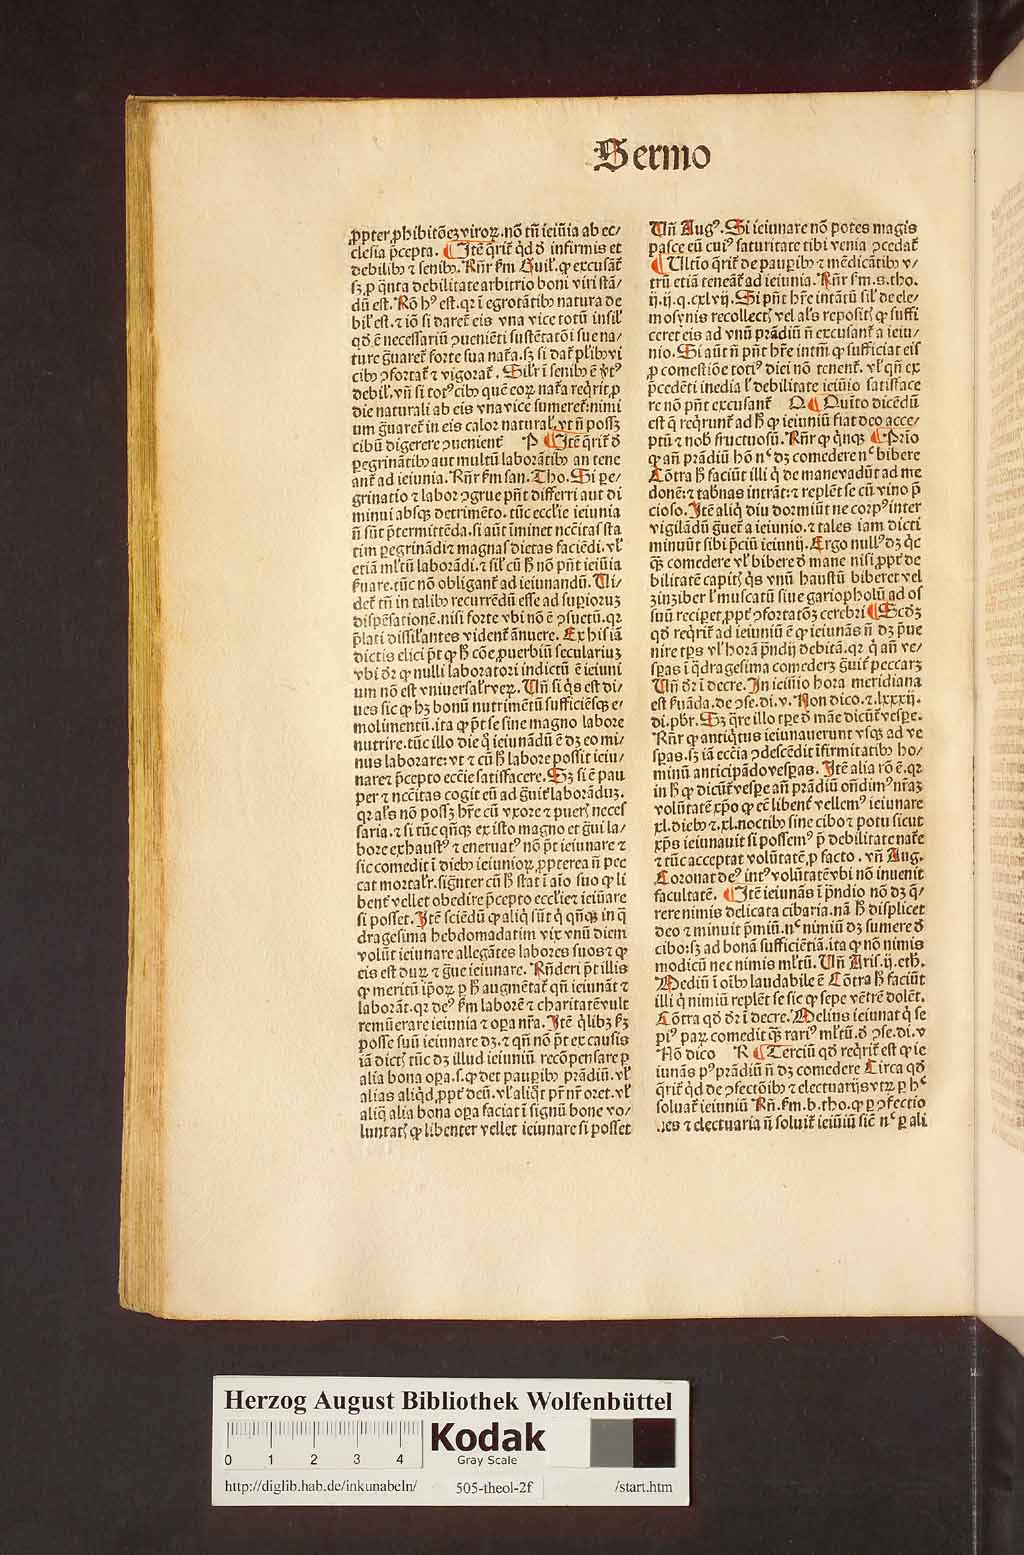 Sermo
ꝓpter ꝓhibitõeꝫ viroꝝ. nõ tñ ieiũia ab ec/
clesia p̃cepta. ¶ Itẽ q̃rit͛ qd̓ ð infirmis et
debilibꝰ ⁊ senibꝰ. Rñr ẜm Guil. ꝙ excusãt͛
sꝫ ꝓ q̃nta debilitate arbitrio boni viri stã/
dũ est. Rõ hꝰ est. qꝛ ĩ egrotãtibꝰ natura de
bil̓ est. ⁊ iõ si daret͛ eis vna vice totũ insil̓
qð ẽ necessariũ ↄueniẽti sustẽtatõi sue na/
ture g̃uaret͛ forte sua nat̃a. sꝫ si dat͛ pl̓ibꝰ vi
cibꝰ ↄfortat͛ ⁊ vigorat͛. Sil̓r ĩ senibꝰ ẽ v̓tꝰ
debil̓. vñ si totꝰ cibꝰ quẽ eoꝝ nat̃a req̓rit ꝓ
die naturali ab eis vna vice sumeret͛: nimi
um g̃uaret͛ in eis calor natural̓. vt ñ possꝫ
cibũ digerere ↄuenient͛ P ¶ Itẽ q̃rit͛ ð
ꝑegrinãtibꝰ aut multũ laborãtibꝰ an tene
ant͛ ad ieiunia. Rñr ẜm san. Tho. Si ꝑe/
grinatio ⁊ labor ↄgrue pñt differri aut di
minui absqꝫ detrimẽto. tũc eccl̓ie ieiunia
ñ sũt p̃termittẽda. si aũt ĩminet nc̃citas sta
tim ꝑegrinãdi ⁊ magnas dietas faciẽdi. vl̓
etiã ml̓tũ laborãdi. ⁊ sil̓ cũ ħ nõ pñt ieiũia
ẜuare. tũc nõ obligant͛ ad ieiunandũ. Vi/
det͛ tñ in talibꝰ recurrẽdũ esse ad suꝑioruꝫ
dispẽsationẽ. nisi forte vbi nõ ẽ ↄsuetũ. qꝛ
p̃lati dissil̓antes vident͛ ãnuere. Ex his iã
dictis elici p̃t ꝙ ħ cõe ꝓuerbiũ seculariuꝫ
vbi dr̃ ꝙ nulli laboratori indictũ ẽ ieiuni
um nõ est vniversal̓r veꝝ. Vñ si q̓s est di/
ues sic ꝙ hꝫ bonũ nutrimẽtũ sufficiẽsqꝫ e/
molimentũ. ita ꝙ p̃t se sine magno labore
nutrire. tũc illo die q̓ ieiunãdũ ẽ dꝫ eo mi/
nus laborare: vt ⁊ cũ ħ labore possit ieiu/
nare ⁊ p̃cepto ecc̃ie satisfacere. Sꝫ si ẽ pau
per ⁊ nc̃citas cogit eũ ad g̃uit͛ laborãduꝫ.
qꝛ al̓s nõ possꝫ hr̃e cũ vxore ⁊ pueris neces
saria. ⁊ si tũc qñqꝫ ex isto magno et g̃ui la/
bore exhaustꝰ ⁊ eneruatꝰ nõ p̃t ieiunare ⁊
sic comedit ĩ diebꝰ ieiunioꝝ. ꝓpterea ñ pec
cat mortal̓r. sign̓ter cũ ħ stat ĩ aĩo suo ꝙ li
bent͛ vellet obedire p̃cepto eccl̓ie ⁊ ieiũare
si posset. Itẽ sciẽdũ ꝙ aliq̓ sũt q̓ qñqꝫ in q̃
dragesima hebdomadatim vix vnũ diem
volũt ieiunare allegãtes labores suos ⁊ ꝙ
eis est duꝝ ⁊ g̃ue ieiunare. Rñderi p̃t illis
ꝙ meritũ ip̃oꝝ ꝑ ħ augmẽtat͛ qñ ieiunãt ⁊
laborãt. qꝛ deꝰ ẜm laborẽ ⁊ charitatẽ vult
remũerare ieiunia ⁊ oꝑa nr̃a. Itẽ q̓libꝫ ẜꝫ
posse suũ ieiunare dꝫ. ⁊ qñ nõ p̃t ex causis
iã dictis tũc dꝫ illud ieiuniũ recõpensare ꝑ
alia bona oꝑa. s. ꝙ det pauꝑibꝰ prãdiũ. vl̓
alias aliq̓d ꝓpt͛ deũ. vl̓ aliq̓t pr̃ nr̃ oret. vl̓
aliq̃ alia bona oꝑa faciat ĩ signũ bone vo/
luntatis ꝙ libenter vellet ieiunare si posset
Vñ Augꝰ. Si ieiunare nõ potes magis
pasce eũ cuiꝰ saturitate tibi venia ↄcedat͛
¶ Ultĩo q̃rit͛ de pauꝑibꝰ ⁊ mẽdicãtibꝰ v/
trũ etiã teneãt͛ ad ieiunia. Rñr ẜm. s. tho.
ij. ij. q. cxlvij. Si pñt hr̃e intãtũ sil̓ de ele/
mosynis recollectis vel al̓s repositis ꝙ suffi
ceret eis ad vnũ prãdiũ ñ excusant͛ a ieiu/
nio. Si aũt ñ pñt hr̃e intm̃ ꝙ sufficiat eis
ꝓ comestiõe totiꝰ diei nõ tenent͛. vl̓ qñ ex
p̃cedẽti inedia l̓ debilitate ieiũio satisface
re nõ pñt excusant͛ Q ¶ Quĩto dicẽdũ
est q̃ req̓runt͛ ad ħ ꝙ ieiuniũ fiat deo acce/
ptũ ⁊ nob̓ fructuosũ. Rñr ꝙ q̓nqꝫ ¶ Prĩo
ꝙ añ prãdiũ hõ nᶜ dꝫ comedere nᶜ bibere
Cõtra ħ faciũt illi q̓ de mane vadũt ad me
donẽ: ⁊ tab̓nas intrãt: ⁊ replẽt se cũ vino p̃
cioso. Itẽ aliq̓ diu dormiũt ne corpꝰ inter
vigilãdũ g̃uet͛ a ieiunio. ⁊ tales iam dicti
minuũt sibi p̃ciũ ieiunij. Ergo nullꝰ dꝫ q̓c
q̃ꝫ comedere vl̓ bibere ð mane nisi ꝓpt͛ de
bilitatẽ capitis q̓s vnũ haustũ biberet vel
zinziber l̓ muscatũ siue gariopholũ ad os
suũ reciꝑet ꝓpt͛ ↄfortatõꝫ cerebri ¶ Scðꝫ
qð req̓rit͛ ad ieiuniũ ẽ ꝙ ieiunãs ñ dꝫ p̃ue
nire tꝑs vl̓ horã prãdij debitã. qꝛ q̓ añ ve/
sꝑas ĩ q̃dragesima comederꝫ g̃uit͛ peccarꝫ
Vñ dr̃ ĩ decre. In ieiũio hora meridiana
est ẜuãda. de ↄse. di. v. Non dico. ⁊. lxxxij.
di. pbr̃. Sꝫ q̃re illo tꝑe ð mãe dicũt͛ vesꝑe.
Rñr ꝙ antiq̓tus ieiunauerunt vsqꝫ ad ve
sꝑas. sꝫ iã ecc̃ia ↄdescẽdit ĩfirmitatibꝰ ho/
minũ anticipãdo vesꝑas. Itẽ alia rõ ẽ. qꝛ
in ħ ꝙ dicũt͛ vesꝑe añ prãdiũ oñdimꝰ nr̃aꝫ
volũtatẽ xp̃o ꝙ ẽt libent͛ vellemꝰ ieiunare
xl. diebꝰ ⁊. xl. noctibꝰ sine cibo ⁊ potu sicut
xp̃s ieiunauit si possemꝰ p̃ debilitate nat̃e
⁊ tũc acceptat volũtatẽ ꝓ facto. vñ Aug.
Coronat deꝰ intꝰ volũtatẽ vbi nõ inuenit
facultatẽ. ¶ Itẽ ieiunãs ĩ prãdio nõ dꝫ q̃/
rere nimis delicata cibaria. nã ħ displicet
deo ⁊ minuit p̃miũ. nᶜ nimiũ dꝫ sumere ð
cibo: sꝫ ad bonã sufficiẽtiã. ita ꝙ nõ nimis
modicũ nec nimis ml̓tũ. Vñ Aris. ij. eth.
Mediũ ĩ oĩbꝰ laudabile ẽ Cõtra ħ faciũt
illi q̓ nimiũ replẽt se sic ꝙ sepe vẽtrẽ dolẽt.
Cõtra qð dr̃ ĩ decre. Melius ieiunat q̓ se
piꝰ paꝝ comedit q̃ꝫ rariꝰ ml̓tũ. ð ↄse. di. v
Nõ dico R ¶ Terciũ qð req̓rit͛ est ꝙ ie
iunãs pꝰ prãdiũ ñ dꝫ comedere Circa qð
q̃rit͛ qd̓ de ↄfectõibꝰ ⁊ electuarijs vtꝝ ꝑ hᶜ
soluat͛ ieiuniũ Rñ. ẜm. b. tho. ꝙ ꝑ ↄfectio
nes ⁊ electuaria ñ soluit͛ ieiũiũ sic̃ nᶜ ꝑ ali
Herzog August Bibliothek Wolfenbüttel
0 1 2 3 4
Kodak
Gray Scale
http://diglib.hab.de/inkunabeln/ 505-theol-2f /start.htm